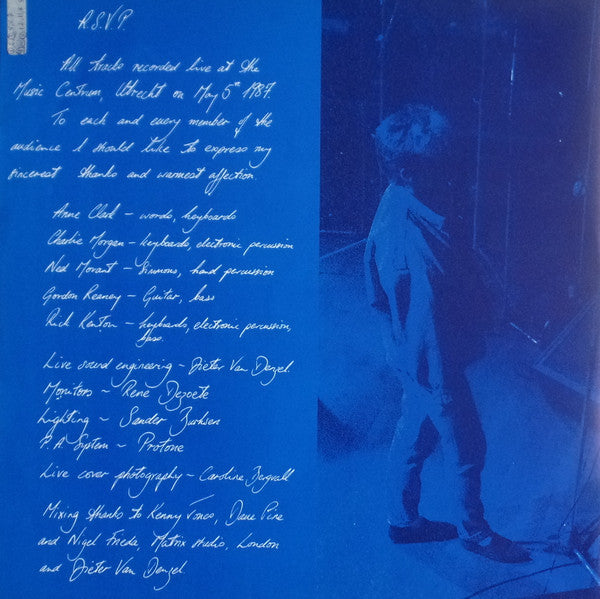 R.S.V.P.
All tracks recorded live at the
Music Centrum, Utrecht on May 5th 1987.
To each and every member of the
audience I should like to express my
sincerest thanks and warmest affection.
Anne Clark – words, keyboards
Charlie Morgan – keyboards, electronic percussion
Ned Morant – Simmons, hand percussion
Gordon Reaney – Guitar, bass
Rick Kenton – keyboards, electronic percussion,
bass.
Live sound engineering – Dieter Van Denzel.
Monitors – Rene Dezoete
Lighting – Sander
P.A System – Protone
Live cover photography – Caroline Bergvall
Mixing thanks to Kenny Jones, Dave Pine
and Nigel Frieda, Matrix studio, London
and Dieter Van Denzel.